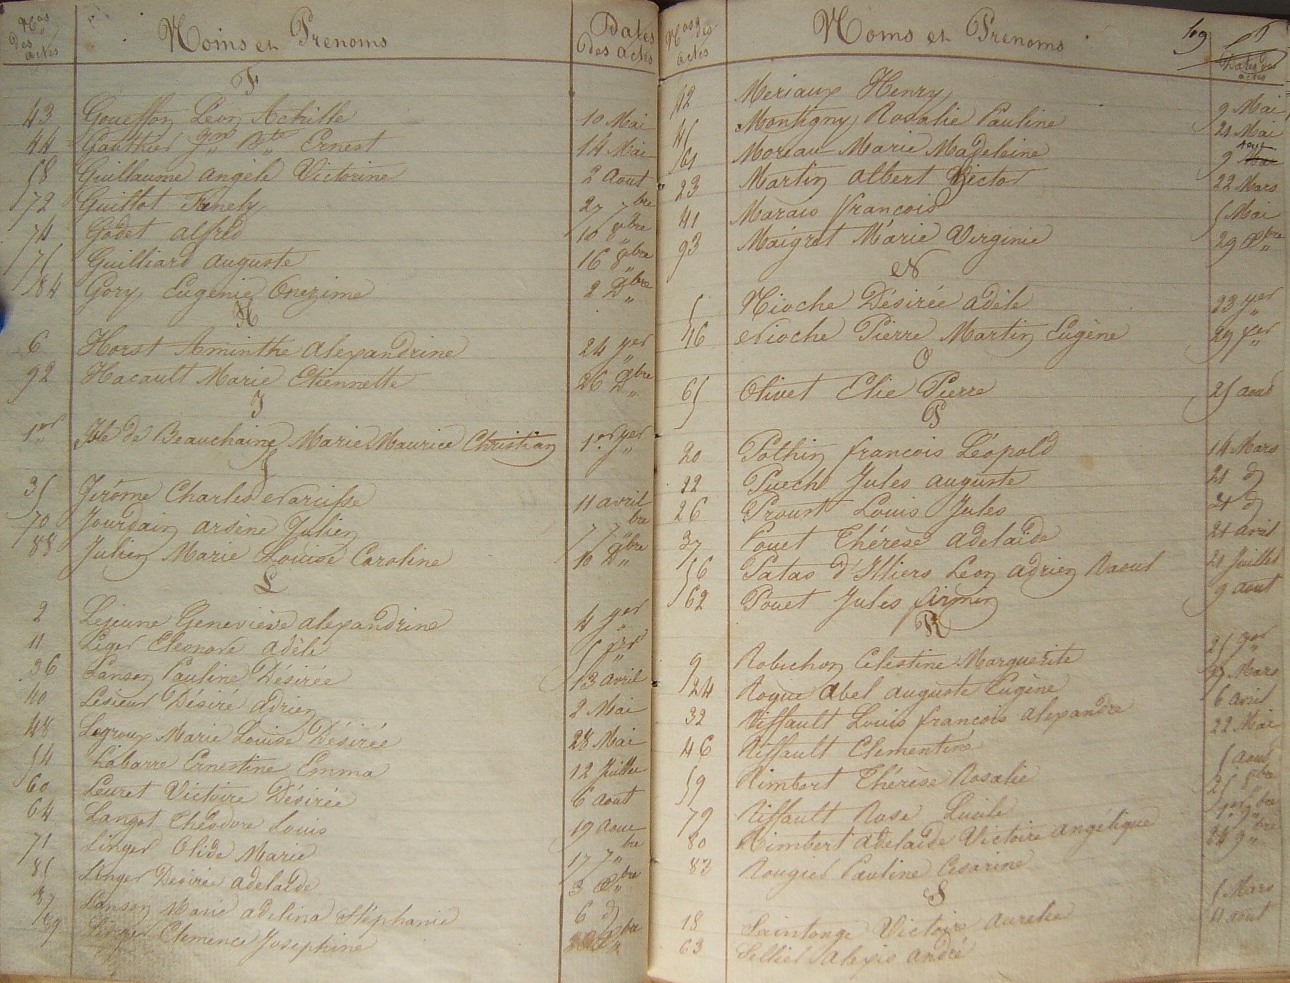 Nos des actes Noms et Prenoms Dates des actes
43 Goueffon Léon Achille 10 Mai
44 Gauthier Ernest 14 Mai
58 Guillaume angele Victorine 2 Aout
72 Guillot 27 7bre
74 Godet alfred 10 8bre
75 Guilliard auguste 16 8bre
84 Gory Eugénie Onezime 2 Dbre
H
6 Horst Aminthe Alexandrine 24 yer
92 Hacault Marie Etiennette 26 Dbre
I
1er de Beauchaine Marie Maurice Christian 1er yer
J
35 Jérôme Charles Narcisse 11 avril
70 Jourdain arsène Julien 7 7bre
88 Julien Marie Louise Caroline 10 Dbre
L
2 Lejeune Geneviève alexandrine 4 yer
11 Leger Eléonore adèle
36 Lanson Pauline Désirée 13 avril
40 Lesieur Désiré Adrien 2 Mai
48 Legroux Marie Louise Désirée 28 Mai
54 Labarre Ernestine Emma 12 Juillet
60 Leuret Victoire Désirée 6 aout
64 Langot Théodore Louis 19 aout
71 Linger Olide Marie 17 7bre
85 Linger Desirée adelaïde 3 Dbre
87 Lanson Marie adelina Stéphanie 6 d
89 Linger Clemence Josephine
Nos des actes Noms et Prenoms 49 Dates des actes
42 Meriaux Henry 9 Mai
45 Montigny Rosalie Pauline 21 Mai
61 Moreau Marie Madeleine 9 aout
23 Martin albert Victor 22 Mars
41 Marais françois 5 Mai
93 Maigret Marie Virginie 29 Dbre
N
5 Nioche Désirée adèle 23 yer
16 Nioche Pierre Martin Eugène 29 fer
O
65 Olivet Elie Pierre 25 aout
P
20 Pothin françois Léopold 14 Mars
22 Puech Jules auguste 21 d
26 Proust Louis Jules 31 d
37 Pouet Thérèse adelaïde 21 avril
56 Patas d'Illiers Leon adrien Raoul 21 Juillet
62 Pouet Jules firmin 9 aout
R
9 Robichon Celestine Marguerite 25 yer
24 Roque Abel auguste Eugène 27 Mars
32 Riffault Louis françois alexandre 6 avril
46 Riffault Clementine 22 Mai
59 Rimbert Thérèse Rosalie 5 aout
79 Riffault Rose Lucile 25 8bre
80 Rimbert Adelaïde Victoire angélique 1er 9bre
83 Rougier Pauline Cesarine 24 9bre
S
18 Saintonge Victoire Aurelie 5 Mars
63 Sellier alexis andré 11 aout